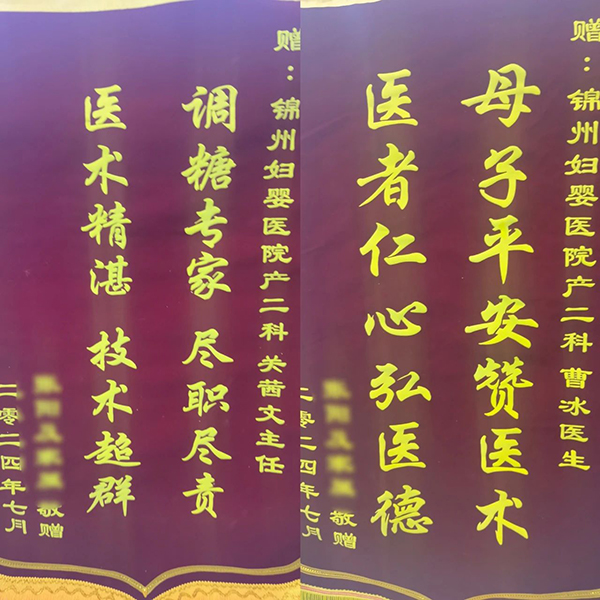 赠：锦州妇婴医院产二科 关茜文主任
调糖专家 尽职尽责
医术精湛 技术超群
敬赠
二零二四年七月
赠：锦州妇婴医院产二科 曹冰医生
母子平安赞医术
医者仁心弘医德
敬赠
二零二四年七月